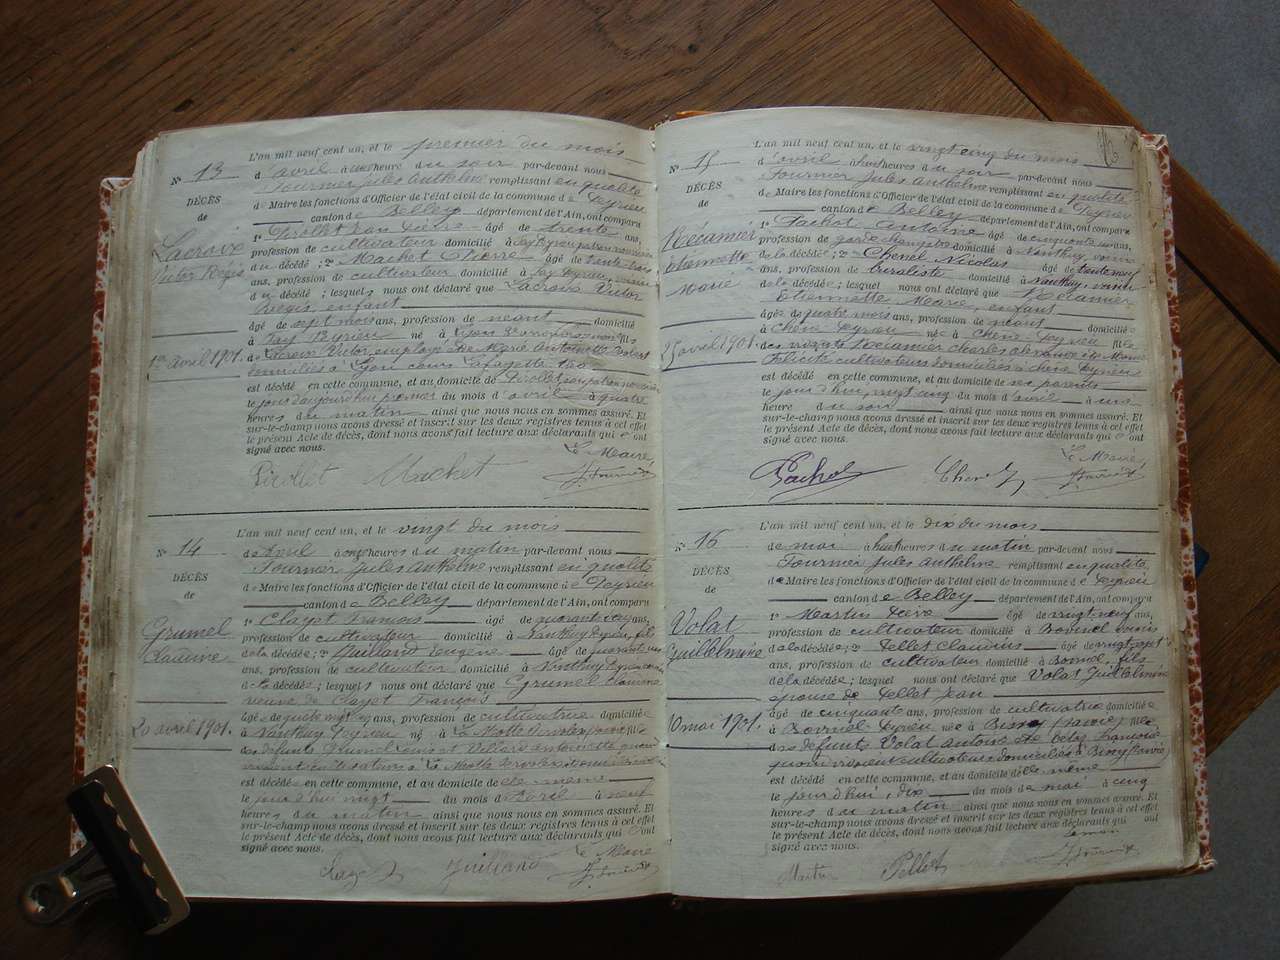 N° 13
DÉCÈS
de
Lacroix
Victor Régis
1er avril 1901.
L'an mil neuf cent un, et le premier du mois
d'avril à heure du soir par-devant nous
Fournier Jules Anthelme remplissant en qualité
de Maire les fonctions d'Officier de l'état civil de la commune de Peyrieu
canton de Belley département de l'Ain, ont comparu
1° Pirollet Jean âgé de trente ans,
profession de cultivateur domicilié à
du décédé ; 2° Machet Pierre âgé de trente-trois
ans, profession de cultivateur domicilié à Fay Peyrieu, voisin
du décédé ; lesquels nous ont déclaré que Lacroix Victor
Régis, enfant
âgé de sept mois ans, profession de néant domicilié
à Fay Peyrieu né à Lyon
de Lacroix Victor, employé et de Marie Antoinette
domiciliés à Lyon cours Lafayette
est décédé en cette commune, et au domicile de Pirollet
le jour d'aujourd'hui premier du mois d'avril à quatre
heures du matin ainsi que nous nous en sommes assuré. Et
sur-le-champ nous avons dressé et inscrit sur les deux registres tenus à cet effet
le présent Acte de décès, dont nous avons fait lecture aux déclarants qui ont
signé avec nous.
Le Maire,
Pirollet Machet J. Fournier
N° 14
DÉCÈS
de
Grumel
Claudine
20 avril 1901.
L'an mil neuf cent un, et le vingt du mois
de Avril à onze heures du matin par-devant nous
Fournier Jules Anthelme remplissant en qualité
de Maire les fonctions d'Officier de l'état civil de la commune de Peyrieu
canton de Belley département de l'Ain, ont comparu
1° Clayet François âgé de quarante ans,
profession de cultivateur domicilié à Nanthuy Peyrieu, fils
de la décédée ; 2° Guilland Eugène âgé de quarante
ans, profession de cultivateur domicilié à Nanthuy Peyrieu
de la décédée ; lesquels nous ont déclaré que Grumel Claudine
veuve de Clayet François
âgée de quatre-vingt ans, profession de cultivatrice domiciliée
à Nanthuy Peyrieu née à La Motte
des défunts Grumel et Villard Antoinette quand
vivaient cultivateurs à La Motte
est décédée en cette commune, et au domicile de elle-même
le jour d'hui vingt du mois d'Avril à neuf
heures du matin ainsi que nous nous en sommes assuré. Et
sur-le-champ nous avons dressé et inscrit sur les deux registres tenus à cet effet
le présent Acte de décès, dont nous avons fait lecture aux déclarants qui ont
signé avec nous.
Le Maire
Guilland J. Fournier
N° 15
DÉCÈS
de
Récamier
Etiennette
Marie
25 avril 1901.
L'an mil neuf cent un, et le vingt cinq du mois
d'avril à heures du soir par-devant nous
Fournier Jules Anthelme remplissant en qualité
de Maire les fonctions d'Officier de l'état civil de la commune de Peyrieu
canton de Belley département de l'Ain, ont comparu
1° Pachot Antoine âgé de cinquante ans,
profession de garde champêtre domicilié à Nanthuy, voisin
de la décédée ; 2° Chenel Nicolas âgé de trente neuf
ans, profession de buraliste domicilié à Nanthuy, voisin
de la décédée ; lesquels nous ont déclaré que Récamier
Etiennette Marie, enfant
âgée de quatre mois ans, profession de néant domiciliée
à Chêne Peyrieu née à Chêne Peyrieu fille
des mariés Récamier Charles Alexandre et de
Félicité cultivateurs domiciliés à Chêne Peyrieu
est décédée en cette commune, et au domicile de ses parents
le jour d'hui, vingt cinq du mois d'avril à une
heure du soir ainsi que nous nous en sommes assuré. Et
sur-le-champ nous avons dressé et inscrit sur les deux registres tenus à cet effet
le présent Acte de décès, dont nous avons fait lecture aux déclarants qui ont
signé avec nous.
Le Maire,
Pachot Chenel J. Fournier
N° 16
DÉCÈS
de
Volat
Guillelmine
10 mai 1901.
L'an mil neuf cent un, et le dix du mois
de mai à huit heures du matin par-devant nous
Fournier Jules Anthelme remplissant en qualité
de Maire les fonctions d'Officier de l'état civil de la commune de Peyrieu
canton de Belley département de l'Ain, ont comparu
1° Martin âgé de vingt neuf ans,
profession de cultivateur domicilié à voisin
de la décédée ; 2° Pellet Claudius âgé de vingt sept
ans, profession de cultivateur domicilié à fils
de la décédée ; lesquels nous ont déclaré que Volat Guillelmine
épouse de Pellet Jean
âgée de cinquante ans, profession de cultivatrice domiciliée
à Peyrieu née à fille
des défunts Volat Antoine et de Françoise
quand vivaient cultivateurs domiciliés à
est décédée en cette commune, et au domicile de elle-même
le jour d'hui, dix du mois de mai à cinq
heures du matin ainsi que nous nous en sommes assuré. Et
sur-le-champ nous avons dressé et inscrit sur les deux registres tenus à cet effet
le présent Acte de décès, dont nous avons fait lecture aux déclarants qui ont
signé avec nous.
Le Maire
Martin Pellet J. Fournier